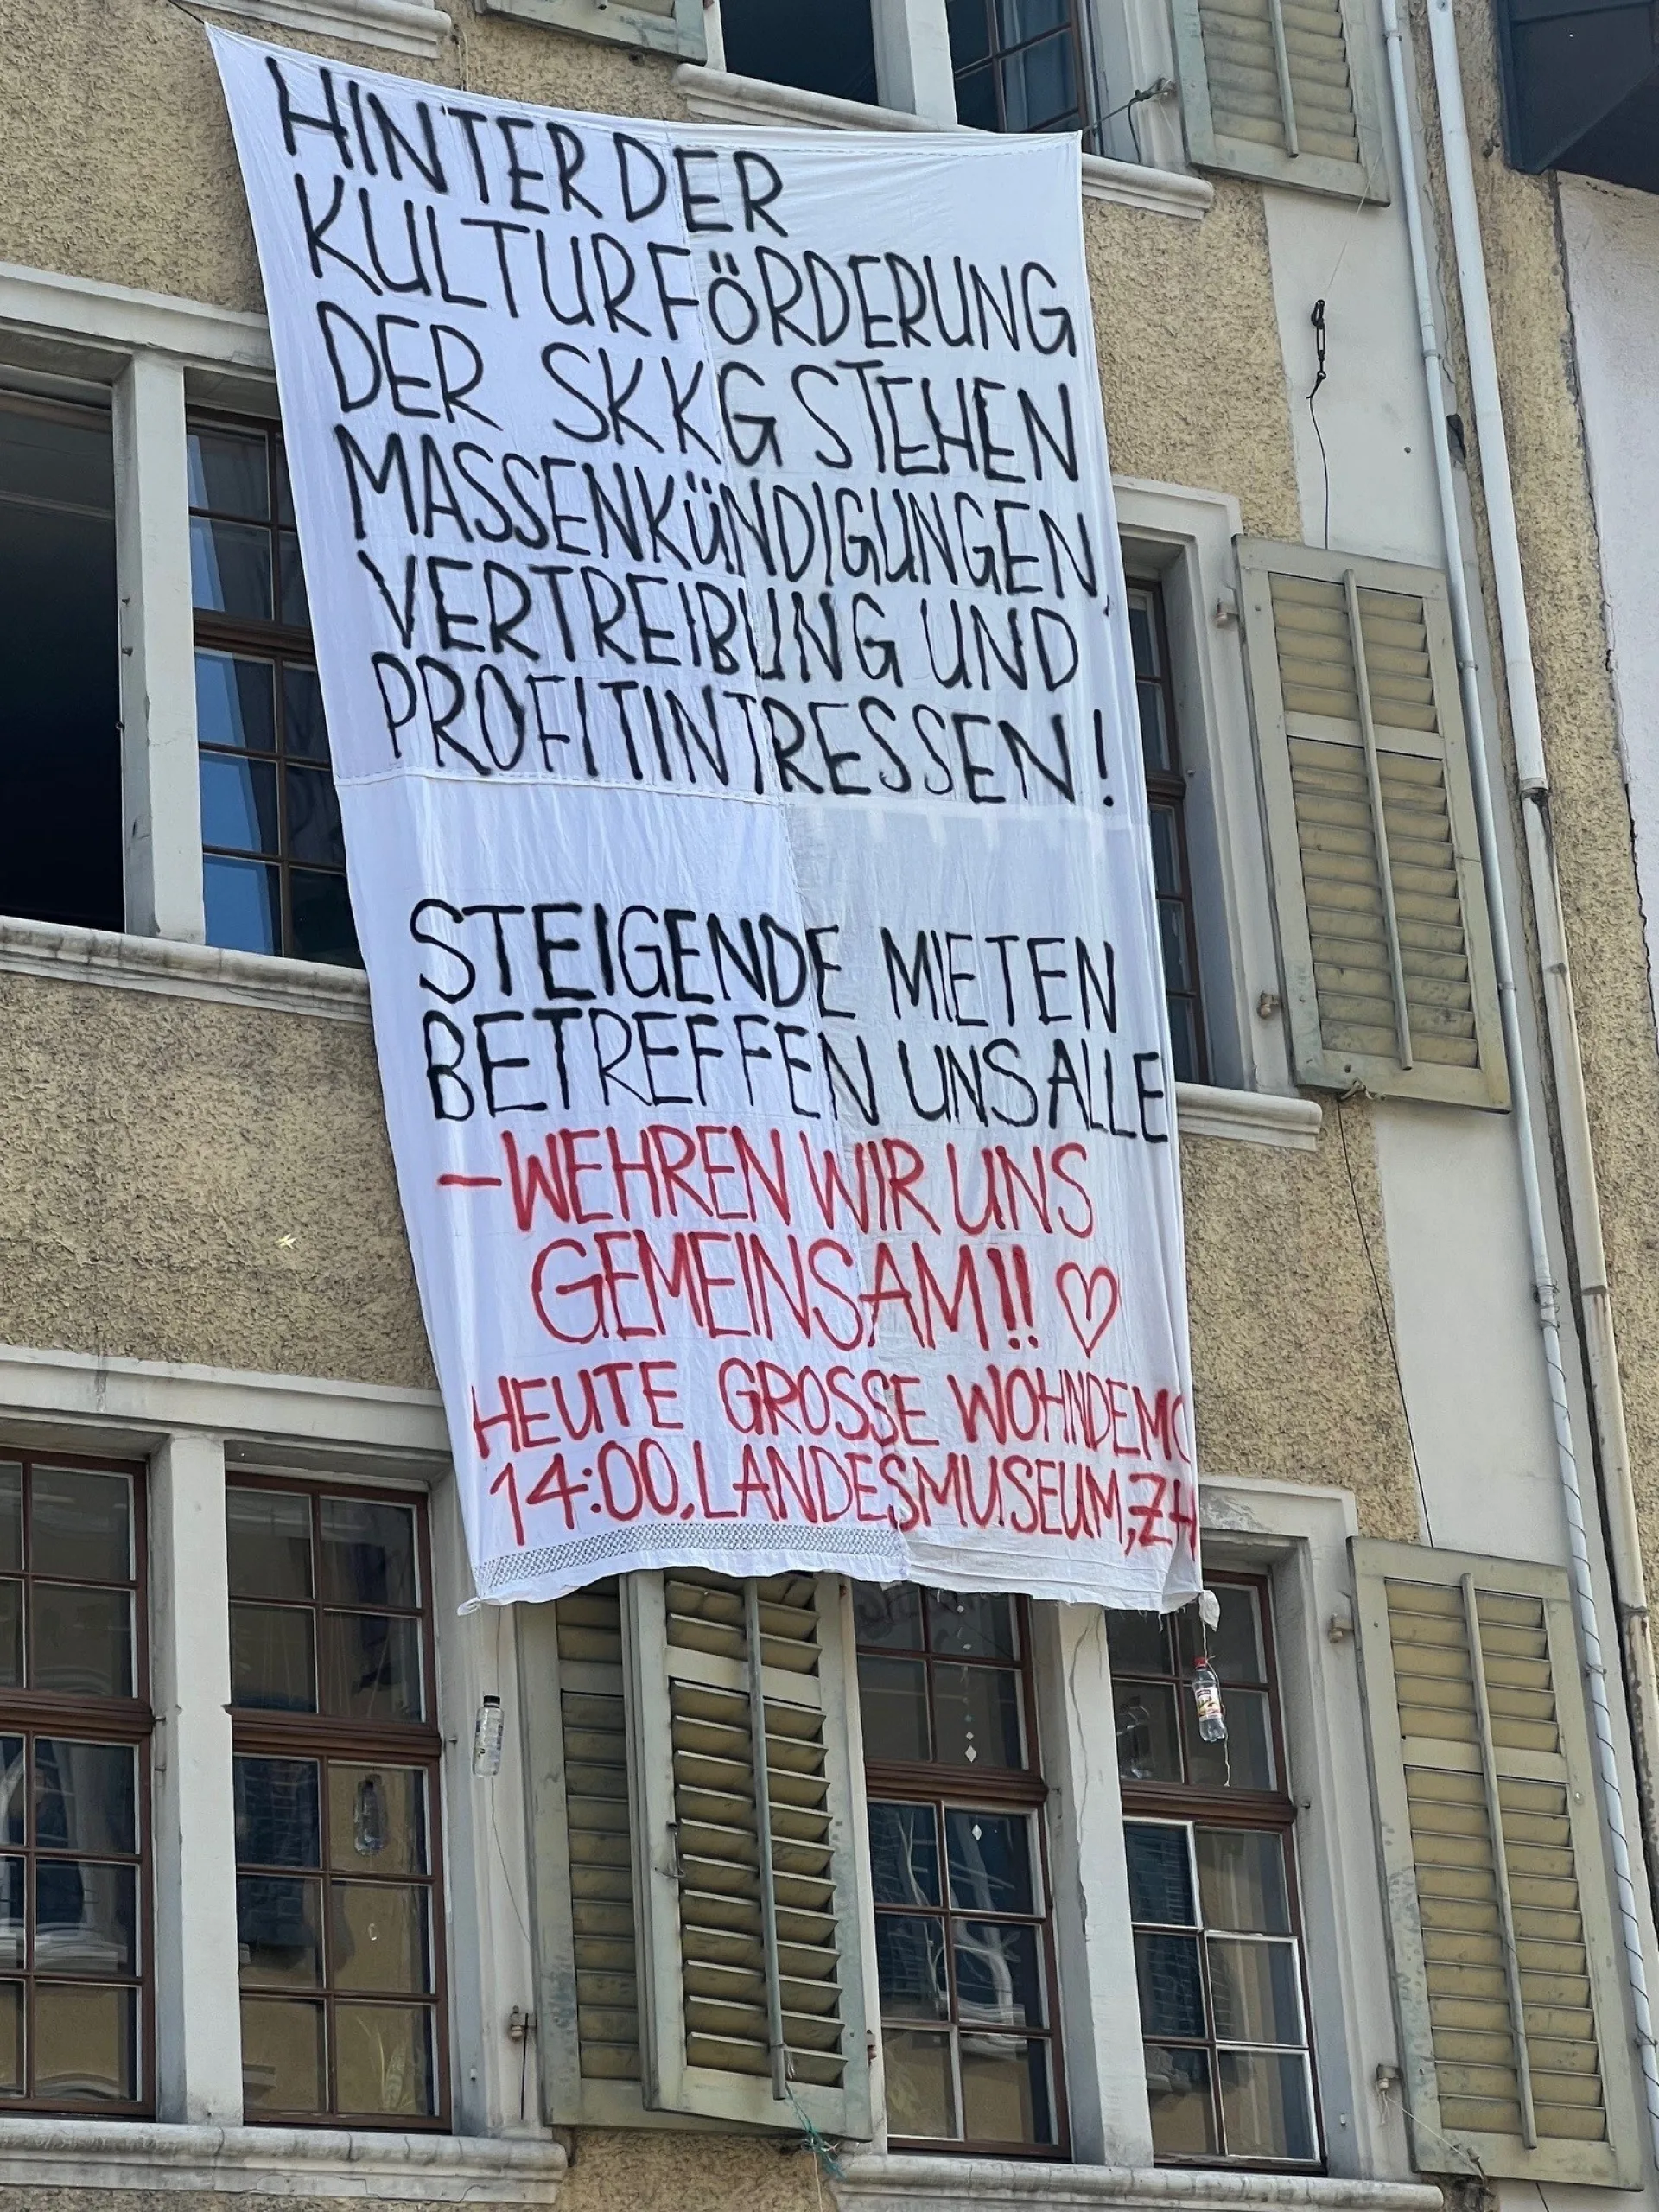 HINTER DER
KULTURFÖRDERUNG
DER SKKG STEHEN
MASSENKÜNDIGUNGEN,
VERTREIBUNG UND
PROFITINTRESSEN!
STEIGENDE MIETEN
BETREFFEN UNS ALLE
– WEHREN WIR UNS
GEMEINSAM!! ♡
HEUTE GROSSE WOHNDEMO
14:00, LANDESMUSEUM, ZH